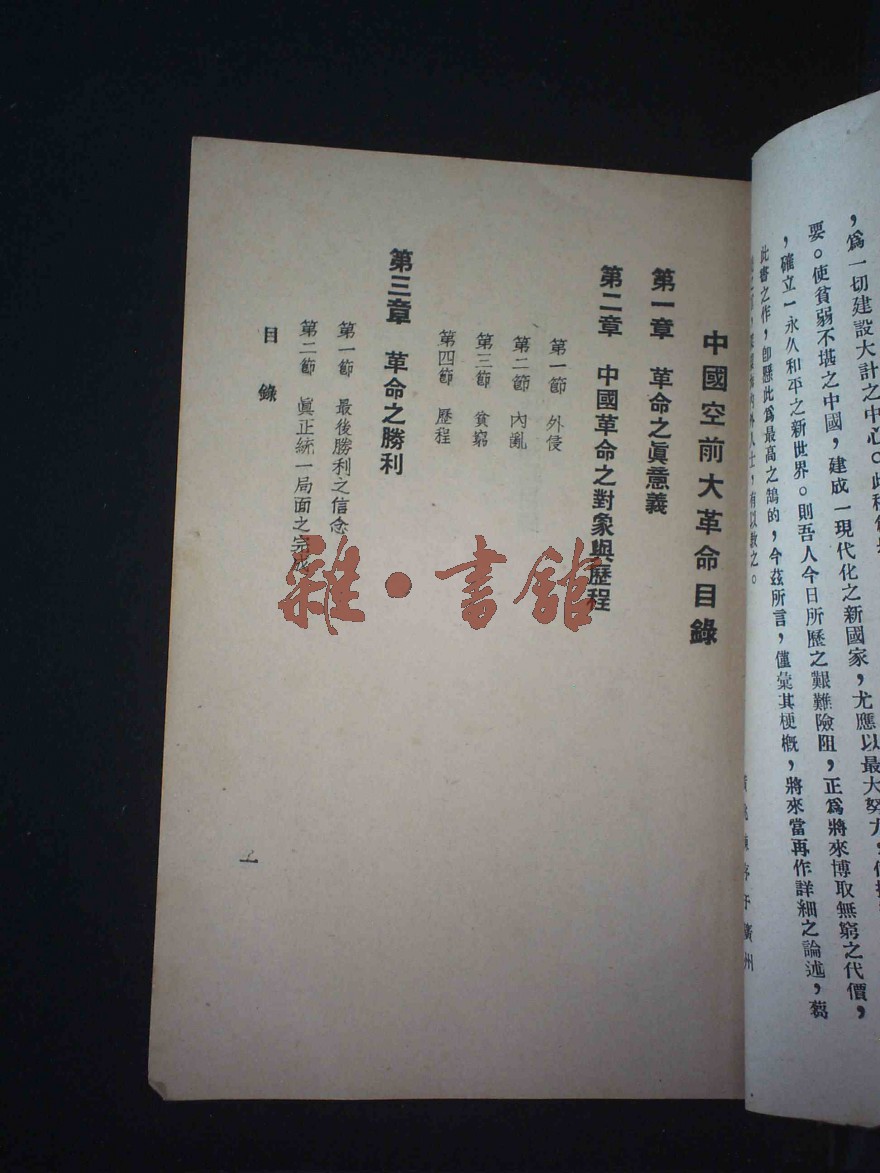 ，爲一切建設大計之中心。此種
要。使貧弱不堪之中國，建成一現代化之新國家，尤應以最大努力，
，確立一永久和平之新世界。則吾人今日所歷之艱難險阻，正爲將來博取無窮之代價，
此書之作，卽懸此爲最高之鵠的，今茲所言，僅彙其梗槪，將來當再作詳細之論述，蒭
的外人士，有以敎之。
序于廣州
中國空前大革命目錄
第一章　革命之眞意義
第二章　中國革命之對象與歷程
第一節　外侵
第二節　內亂
第三節　貧窮
第四節　歷程
第三章　革命之勝利
第一節　最後勝利之信念
第二節　眞正統一局面之完成
目錄
一
雜·書館